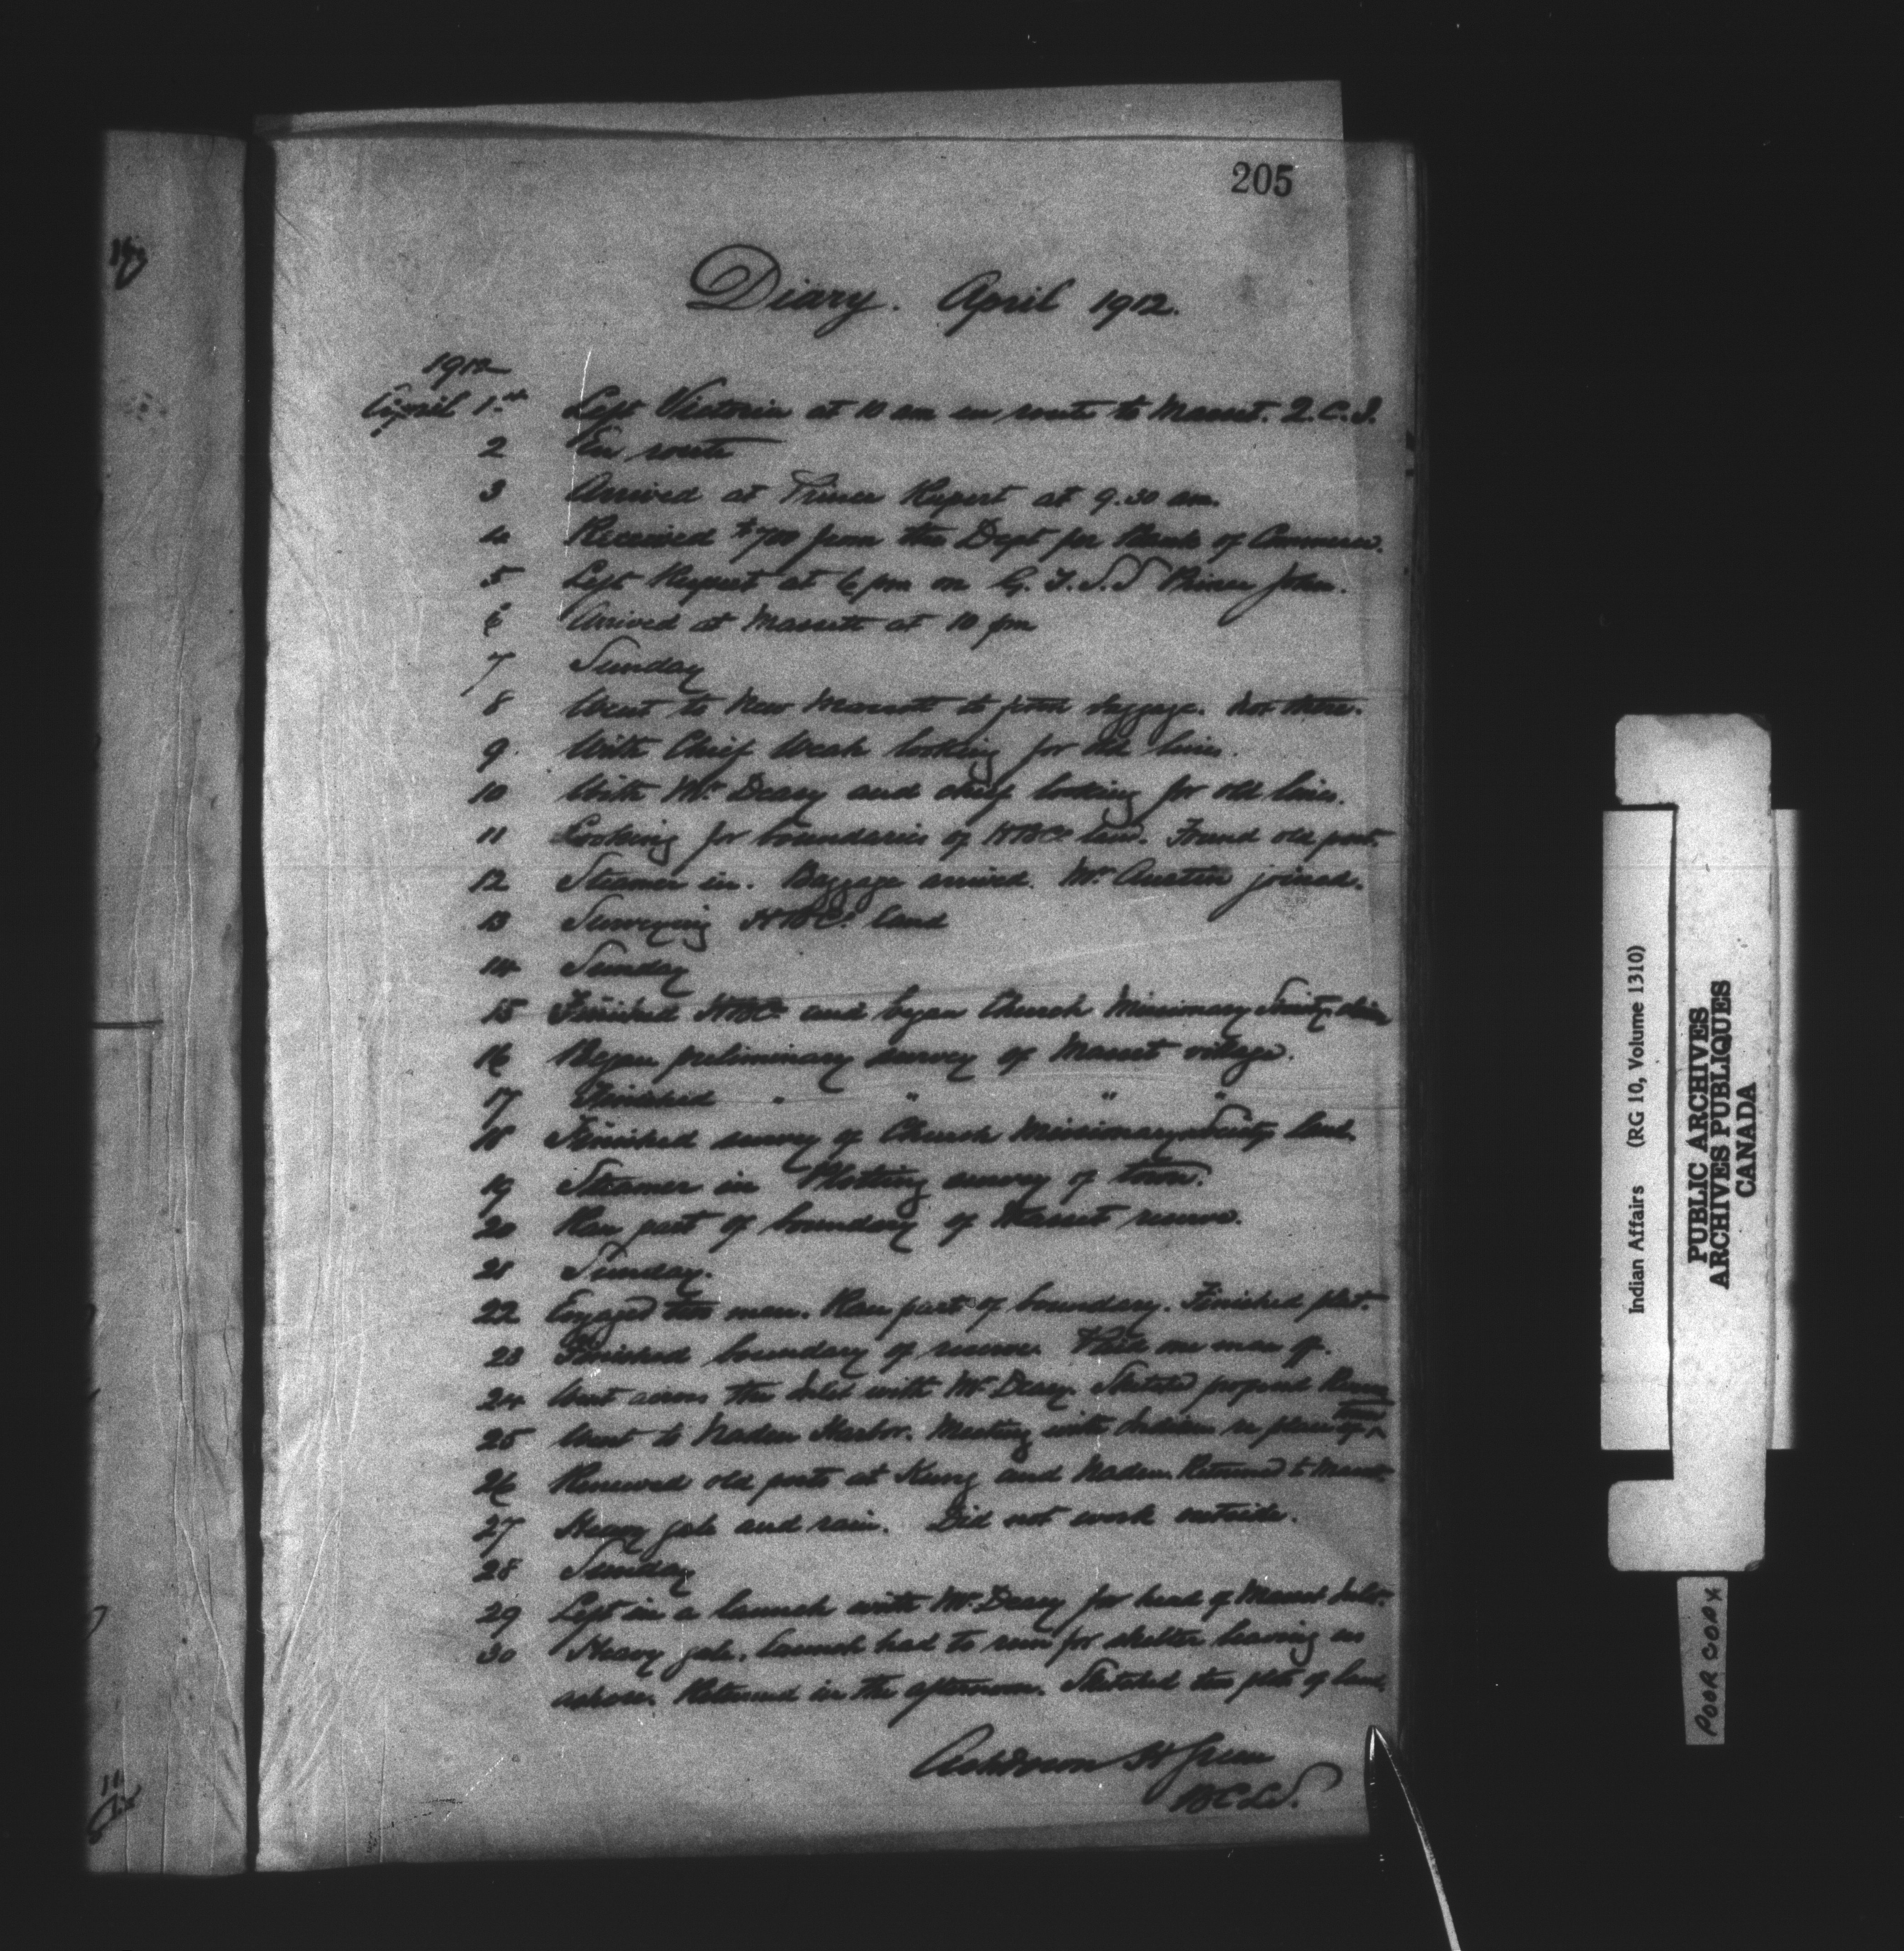 205
Diary. April 1912.
1912
April 1st Left Victoria at 10 am en route to Masset. Q.C.I.
2 En route
3 Arrived at Prince Rupert at 9.30 am.
4 Received $700 from the Dept per Bank of Commerce.
5 Left Rupert at 6 pm on G.T.S.S Prince John.
6 Arrived at Massett at 10 pm
7 Sunday
8 Went to New Massett to find baggage. Not there.
9. With Chief Weah looking for old lines.
10 With Mr Deasy and chief looking for old lines.
11 Looking for boundaries of HBCo land. Found old post.
12 Steamer in. Baggage arrived. Mr Austin joined.
13 Surveying HBCo. land
14 Sunday
15 Finished HBCo and began Church Missionary Society
16 Began preliminary survey of Masset village.
17 Finished " " " "
18 Finished survey of Church Missionary Society land.
19 Steamer in Plotting survey of town.
20 Ran part of boundary of Masset reserve.
21 Sunday.
22 Engaged two men. Ran part of boundary. Finished plot.
23 Finished boundary of reserve. Paid one man off.
24 Went across the Inlet with Mr Deasy. Sketched proposed Reserve
25 Went to Naden Harbor. Meeting with Indians re plan of town
26 Renewed old posts at Kung and Naden. Returned to Masset.
27 Heavy gale and rain. Did not work outside.
28 Sunday
29 Left in a launch with Mr. Deasy for head of Masset Inlet.
30 Heavy gale. Launch had to run for shelter leaving us
ashore. Returned in the afternoon. Sketched two plots of land.
Ashdown H Green
BCLS.
Indian Affairs (RG 10, Volume 1310)
PUBLIC ARCHIVES
ARCHIVES PUBLIQUES
CANADA
POOR COPY